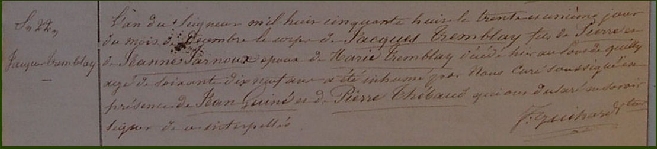 S. 22.
Jacques Tremblay
L'an du Seigneur mil huit cinquante huit le trente et unième jour
du mois de Décembre le corps de Jacques Tremblay fils de Pierre et
de Jeanne Farnoux époux de Marie Tremblay décédé hier au
agé de soixante dix neuf ans a été inhumé par Nous Curé soussigné en
présence de Jean Guiné et de Pierre Thébaud qui ont déclaré ne savoir
signer de ce interpellés
F. Guichard